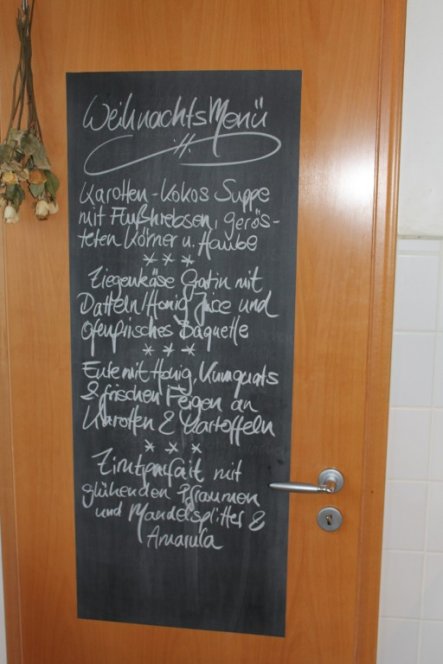 WeihnachtsMenü
Karotten-Kokos Suppe
mit Flußkrebsen, gerös-
teten Körner u. Haube
* * *
Ziegenkäse Gratin mit
Datteln/Honig Juce und
Ofenfrisches Baguette
* * *
Ente mit Honig, Kumquats
& frischen Feigen an
Karotten & Kartoffeln
* * *
Zimtparfait mit
glühenden Pflaumen
und Mandelsplitter &
Amarula